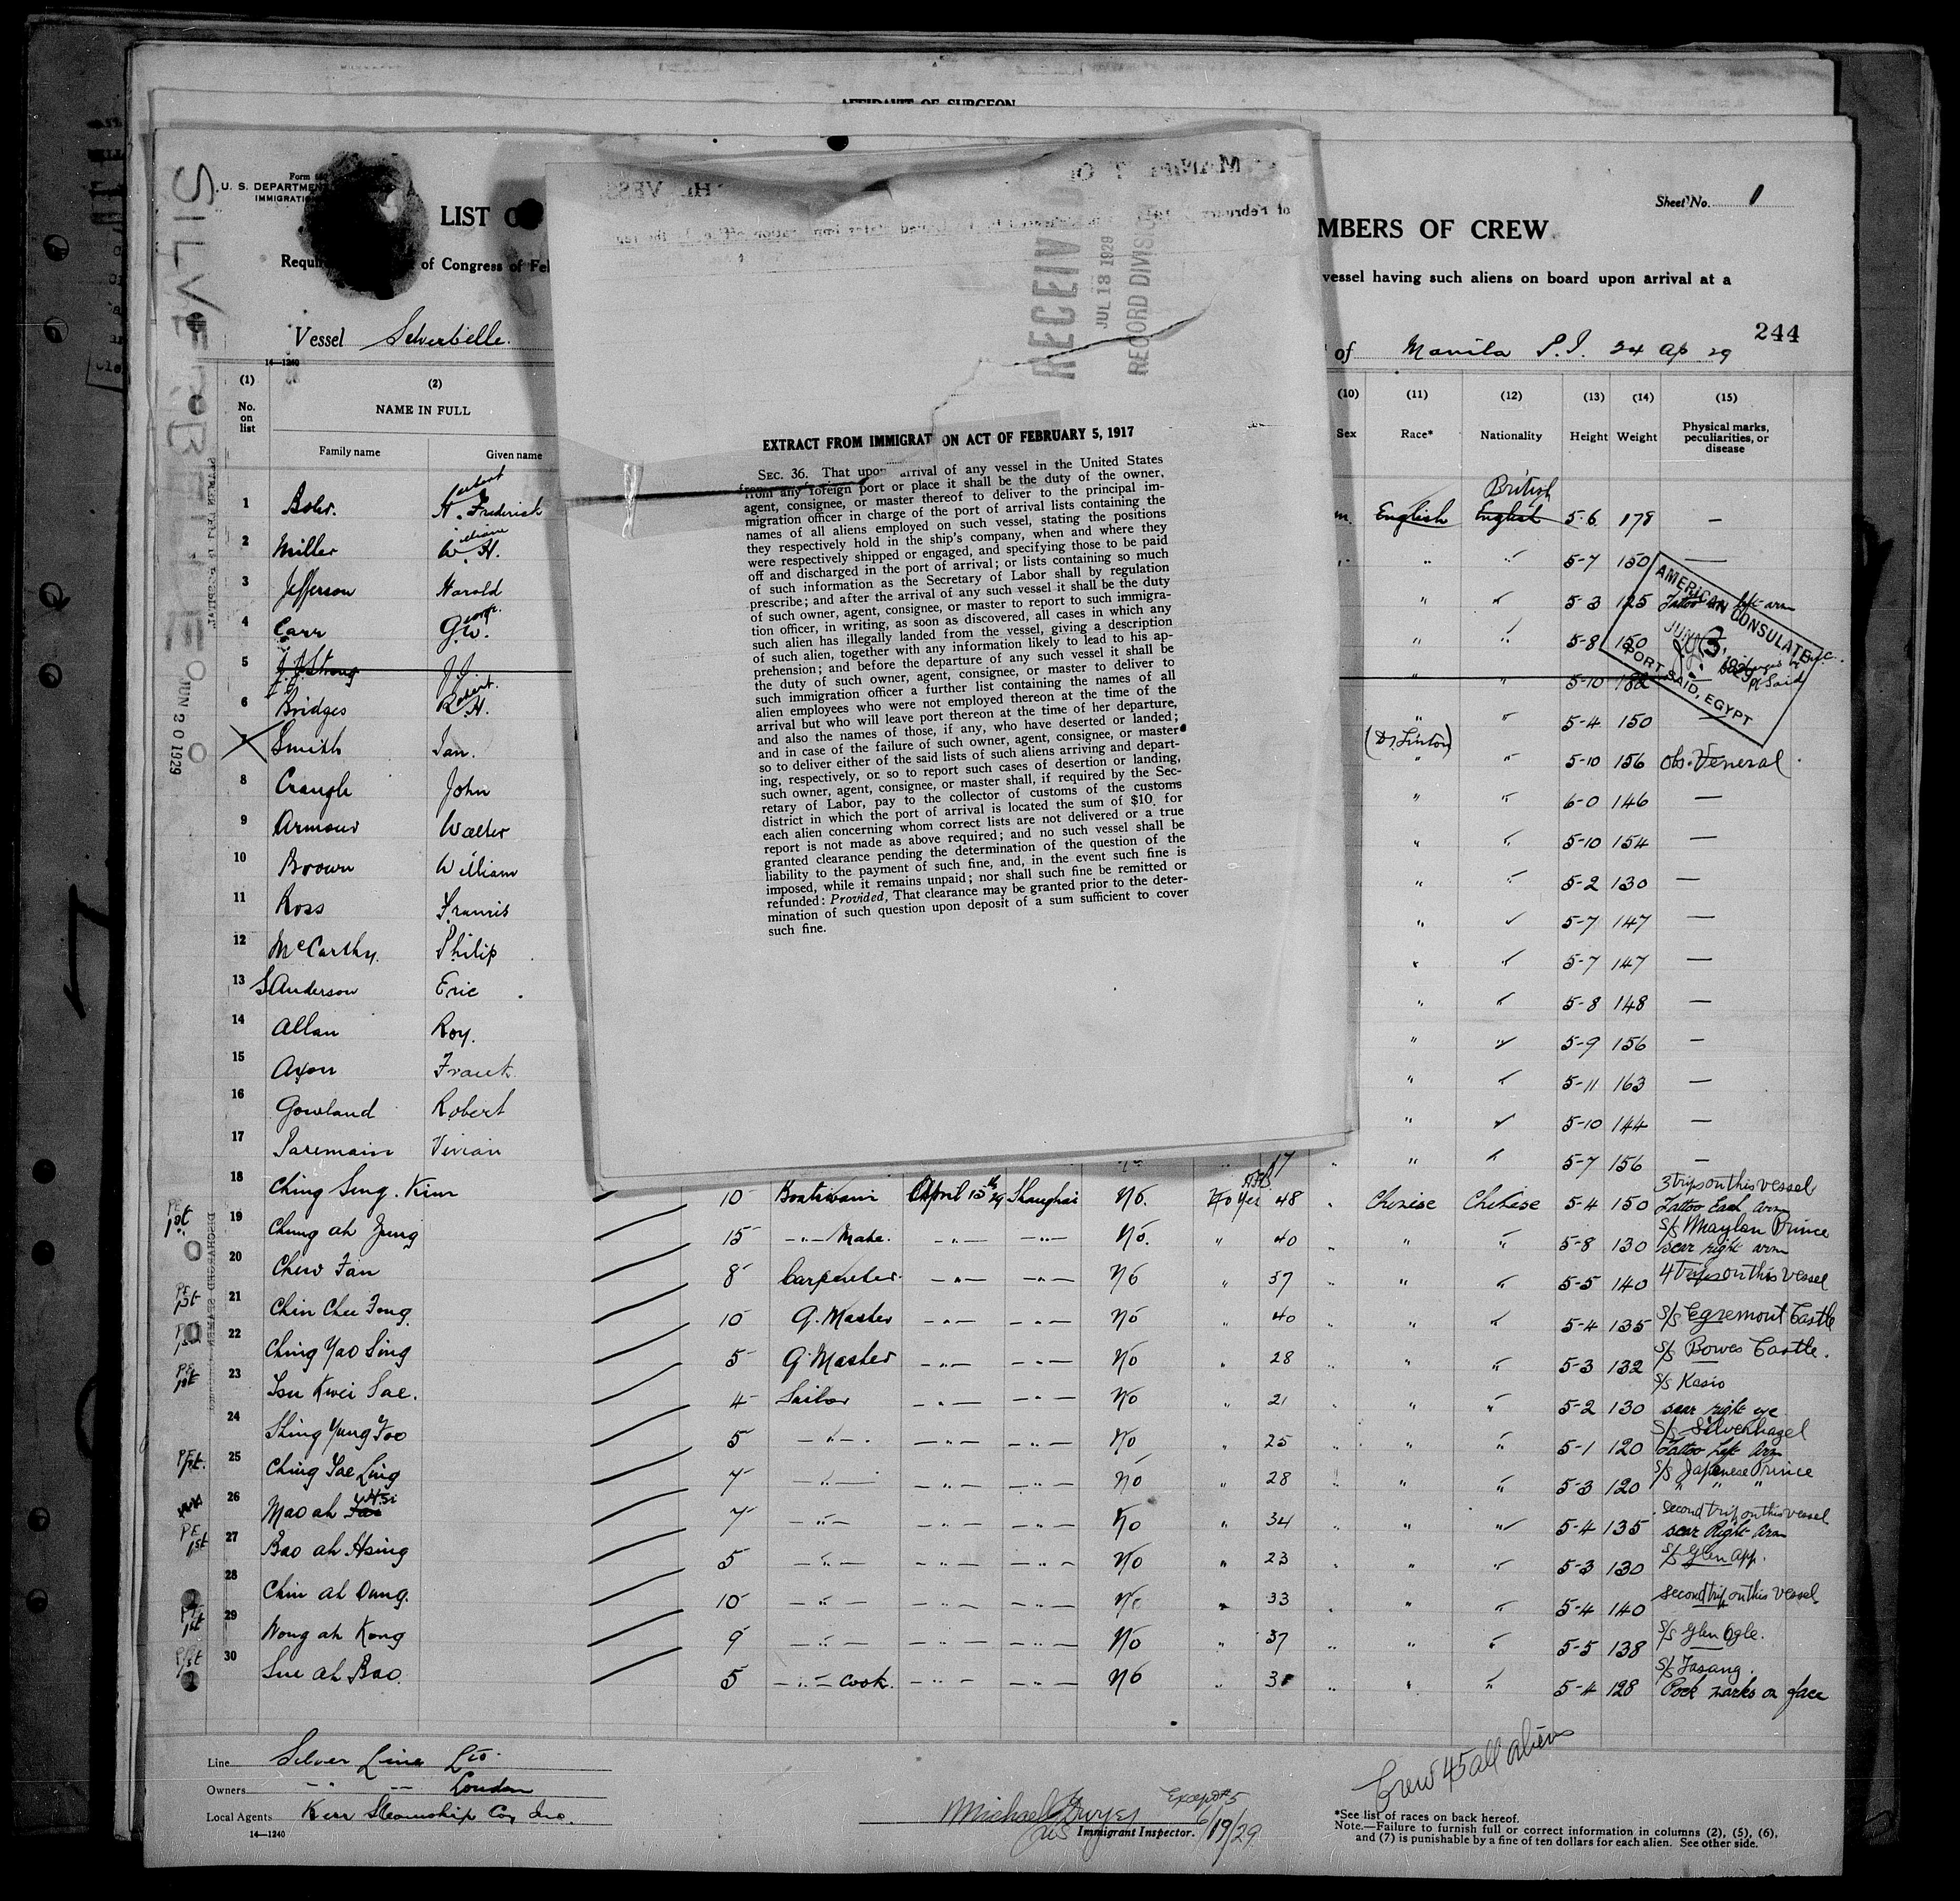 AFFIDAVIT OF SURGEON
SILVERBELLE
JUN 20 1929
U. S. DEPARTMENT
IMMIGRATION
LIST O
MBERS OF CREW
Sheet No. 1
of Congress of Feb
vessel having such aliens on board upon arrival at a
244
Vessel Silverbelle.
of Manila P.I. 24 Ap 29
RECEIV
JUL 18 1929
RECORD DIVISION
14—1240
(1) (2) (10) (11) (12) (13) (14) (15)
No. on list
NAME IN FULL
Family name Given name
Sex Race* Nationality Height Weight Physical marks, peculiarities, or disease
EXTRACT FROM IMMIGRAT ON ACT OF FEBRUARY 5, 1917
SEC. 36. That upon arrival of any vessel in the United States
from any foreign port or place it shall be the duty of the owner,
agent, consignee, or master thereof to deliver to the principal im-
migration officer in charge of the port of arrival lists containing the
names of all aliens employed on such vessel, stating the positions
they respectively hold in the ship's company, when and where they
were respectively shipped or engaged, and specifying those to be paid
off and discharged in the port of arrival; or lists containing so much
of such information as the Secretary of Labor shall by regulation
prescribe; and after the arrival of any such vessel it shall be the duty
of such owner, agent, consignee, or master to report to such immigra-
tion officer, in writing, as soon as discovered, all cases in which any
such alien has illegally landed from the vessel, giving a description
of such alien, together with any information likely to lead to his ap-
prehension; and before the departure of any such vessel it shall be
the duty of such owner, agent, consignee, or master to deliver to
such immigration officer a further list containing the names of all
alien employees who were not employed thereon at the time of the
arrival but who will leave port thereon at the time of her departure,
and also the names of those, if any, who have deserted or landed;
and in case of the failure of such owner, agent, consignee, or master
so to deliver either of the said lists of such aliens arriving and depart-
ing, respectively, or so to report such cases of desertion or landing,
such owner, agent, consignee, or master shall, if required by the Sec-
retary of Labor, pay to the collector of customs of the customs
district in which the port of arrival is located the sum of $10 for
each alien concerning whom correct lists are not delivered or a true
report is not made as above required; and no such vessel shall be
granted clearance pending the determination of the question of the
liability to the payment of such fine, and, in the event such fine is
imposed, while it remains unpaid; nor shall such fine be remitted or
refunded: Provided, That clearance may be granted prior to the deter-
mination of such question upon deposit of a sum sufficient to cover
such fine.
1 H. Frederick m. English British English 5-6 178 —
2 Miller W. H. " " 5-7 150 —
3 Jefferson Harold " " 5-3 125 Tattoo left arm
4 Carr G.W. " " 5-8 150
5 J.J. " " 5-10 182
AMERICAN CONSULATE
JUN 3 1929
PORT SAID, EGYPT
6 Bridges R. H. " " 5-4 150 —
7 Smith Ian. " " 5-10 156 Obs. Veneral
8 Craugh John " " 6-0 146 —
9 Armour Walter " " 5-10 154 —
10 Brown William " " 5-2 130 —
11 Ross Francis " " 5-7 147 —
12 McCarthy. Philip " " 5-7 147 —
13 SAnderson Eric " " 5-8 148 —
14 Allan Roy. " " 5-9 156 —
15 Axon Frank " " 5-11 163 —
16 Gowland Robert " " 5-10 144 —
17 Paremain Vivian 17 " " 5-7 156 —
18 Ching Sing. Kim 10 Boatswain April 15th 29 Shanghai No. No Yes 48 " Chinese Chinese 5-4 150 3 trips on this vessel Tattoo Each Arm
19 Chung ah Jung 15 -"- Mate. -"- -"- No. " 40 " " " 5-8 130 S/S Maylan Prince scar right arm
20 Chew Fan 8 Carpenter -"- -"- No " 57 " " " 5-5 140 4 trips on this vessel
21 Chin Chee Fong 10 Q. Master -"- -"- No " 40 " " " 5-4 135 S/S Egremont Castle
22 Ching Yao Sing 5 Q Master -"- -"- No " 28 " " " 5-3 132 S/S Bowes Castle.
23 Tsu Kwei Sae. 4 Sailor -"- -"- No " 21 " " " 5-2 130 S/S Kasio scar right eye
24 Shing Yung Foo 5 -"- -"- -"- No " 25 " " " 5-1 120 S/S Silverhazel Tattoo Left Arm
25 Ching Sae Ling 7 -"- -"- -"- No " 28 " " " 5-3 120 S/S Japanese Prince " " "
26 Mao ah 7 -"- -"- -"- No " 34 " " " 5-4 135 second trip on this vessel scar Right Arm
27 Bao ah Hsing 5 -"- -"- -"- No " 23 " " " 5-3 130 S/S Glen app.
28 Chin ah Dung. 10 -"- -"- -"- No " 33 " " " 5-4 140 second trip on this vessel
29 Wong ah Kong 9 -"- -"- -"- No " 37 " " " 5-5 138 S/S Glen Ogle.
30 Sue ah Bao. 5 -"- Cook. -"- -"- No " " " " 5-4 128 S/S Fasang. Pock marks on face
Line Silver Line Ltd.
Owners -"- -"- London
Local Agents Kerr Steamship Co, Inc.
14—1240
Crew 45 all aliens
Except #5
Michael Dwyer 6/19/29
Immigrant Inspector.
*See list of races on back hereof.
Note.—Failure to furnish full or correct information in columns (2), (5), (6),
and (7) is punishable by a fine of ten dollars for each alien. See other side.